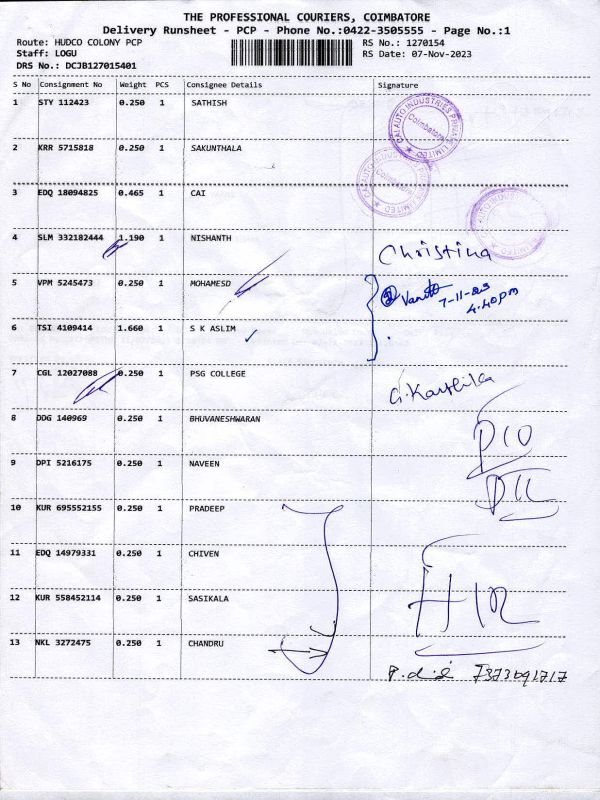 THE PROFESSIONAL COURIERS, COIMBATORE
Delivery Runsheet - PCP - Phone No.:0422-3505555 - Page No.:1
Route: HUDCO COLONY PCP RS No.: 1270154
Staff: LOGU RS Date: 07-Nov-2023
DRS No.: DCJB127015401
S No Consignment No Weight PCS Consignee Details Signature
1 STY 112423 0.250 1 SATHISH
CAI AUTO INDUSTRIES PRIVATE LIMITED
Coimbatore
2 KRR 5715818 0.250 1 SAKUNTHALA
3 EDQ 18094825 0.465 1 CAI
4 SLM 332182444 1.190 1 NISHANTH
Christina
5 VPM 5245473 0.250 1 MOHAMESD
7-11-23
4.40pm
6 TSI 4109414 1.660 1 S K ASLIM
7 CGL 12027088 0.250 1 PSG COLLEGE
G.Karthika
8 DDG 140969 0.250 1 BHUVANESHWARAN
9 DPI 5216175 0.250 1 NAVEEN
10 KUR 695552155 0.250 1 PRADEEP
11 EDQ 14979331 0.250 1 CHIVEN
12 KUR 558452114 0.250 1 SASIKALA
13 NKL 3272475 0.250 1 CHANDRU